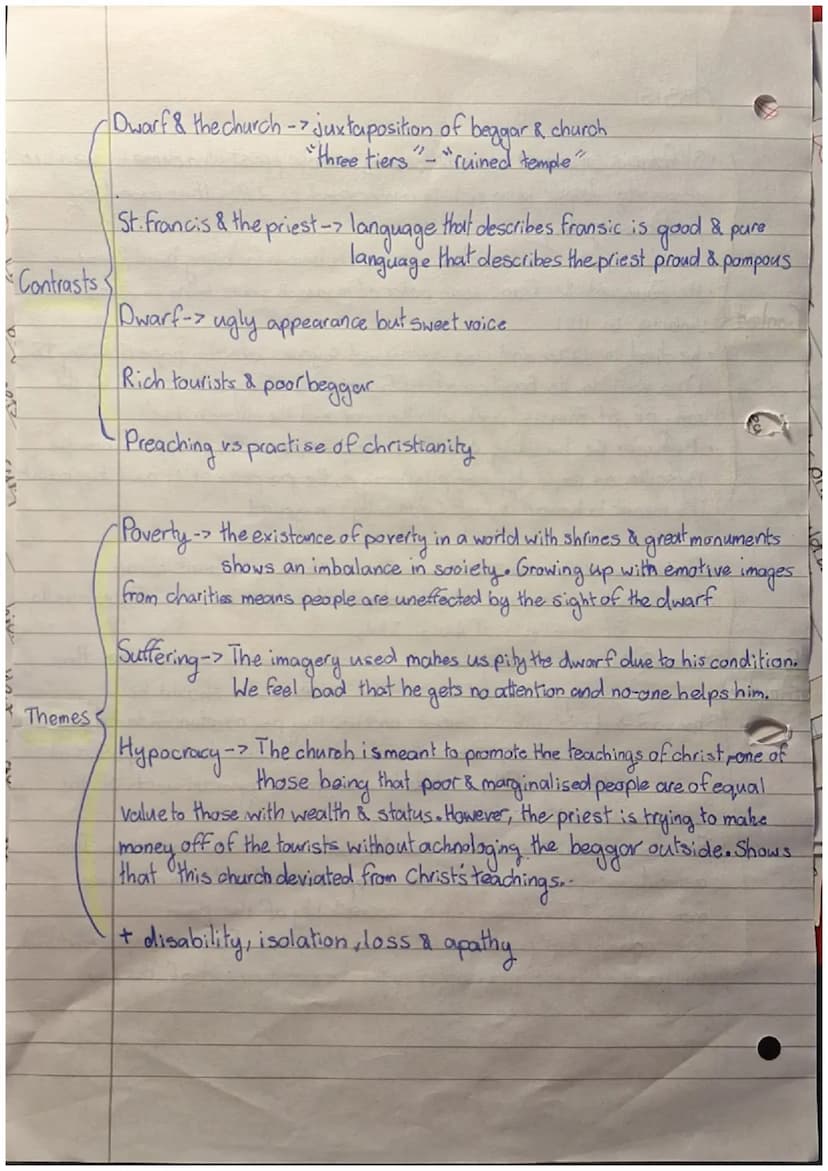 Dwarf & the church -> juxtaposition of beggar & church
"three tiers" - "ruined temple"
St. Francis & the priest -> language that describes Fransic is good & pure
language that describes the priest proud & pompous
Contrasts
Dwarf -> ugly appearance but sweet voice
Rich tourists & poor beggar
Preaching vs practise of christianity
Poverty -> the existance of poverty in a world with shrines & great monuments
shows an imbalance in society. Growing up with emotive images
from charities means people are uneffected by the sight of the dwarf
Suffering -> The imagery used makes us pity the dwarf due to his condition.
We feel bad that he gets no attention and no-one helps him.
Themes
Hypocracy -> The church is meant to promote the teachings of christ, one of
those being that poor & marginalised people are of equal
value to those with wealth & status. However, the priest is trying to make
money off of the tourists without achnologing the beggar outside. Shows
that this church deviated from Christ's teachings..
+ disability, isolation, loss & apathy